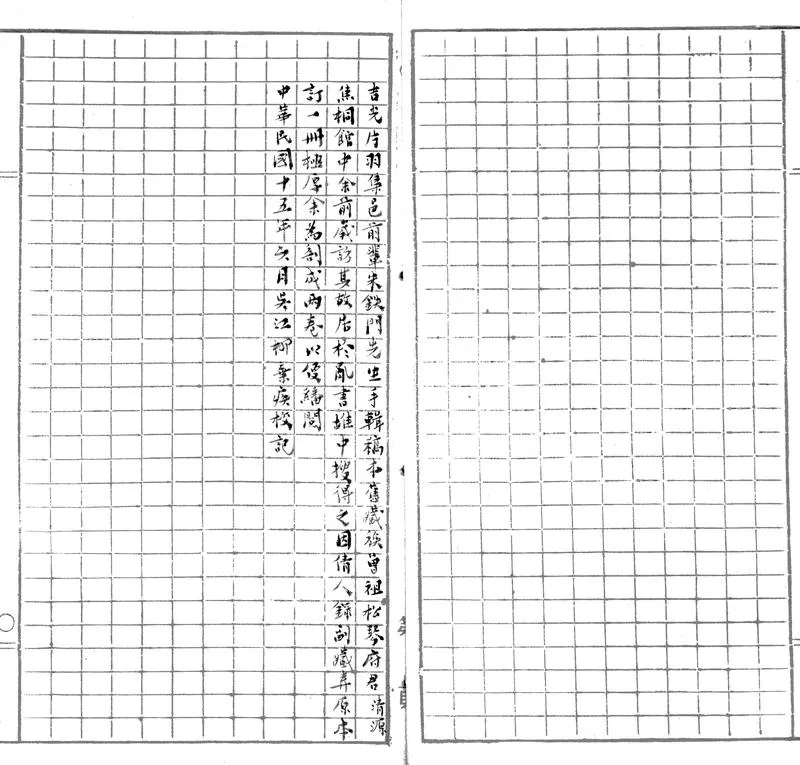 吉光片羽集邑前輩朱鉄門先生手輯稿本舊藏族曾祖松琴府君清源
焦桐館中余前歲訪其故居於亂書堆中搜得之因倩人錄副藏弆原本
訂一冊極厚余為剖成兩卷以便繙閱
中華民國十五年六月吳江柳棄疾校記